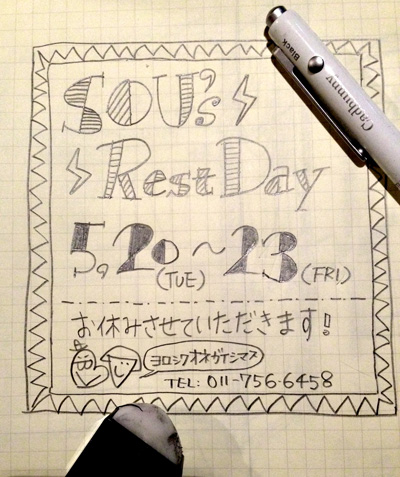 SOU's
Rest Day
5,20(TUE)~23(FRI)
お休みさせていただきます!
ヨロシクオネガイシマス
TEL: 011-756-6458
Black
Cadbunny